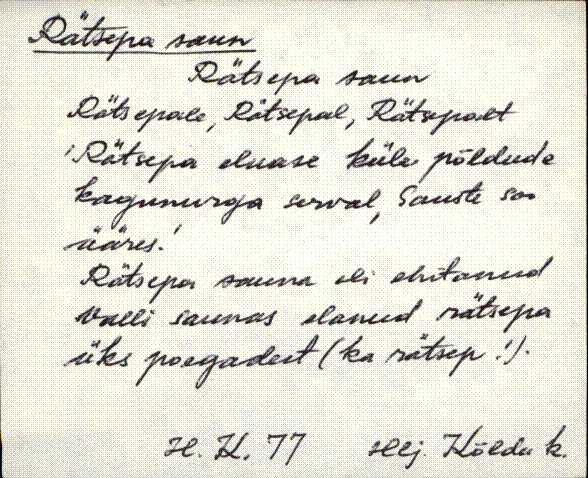 Rätsepa saun
Rätsepa saun
Rätsepale, Rätsepal, Rätsepalt
'Rätsepa eluase küla põldude
kagunurga serval, Sauste soo
ääres.'
Rätsepa sauna oli ehitanud
Valli saunas elanud rätsepa
üks poegadest (ka rätsep!).
H. K. 77 Hlj. Kõldu k.